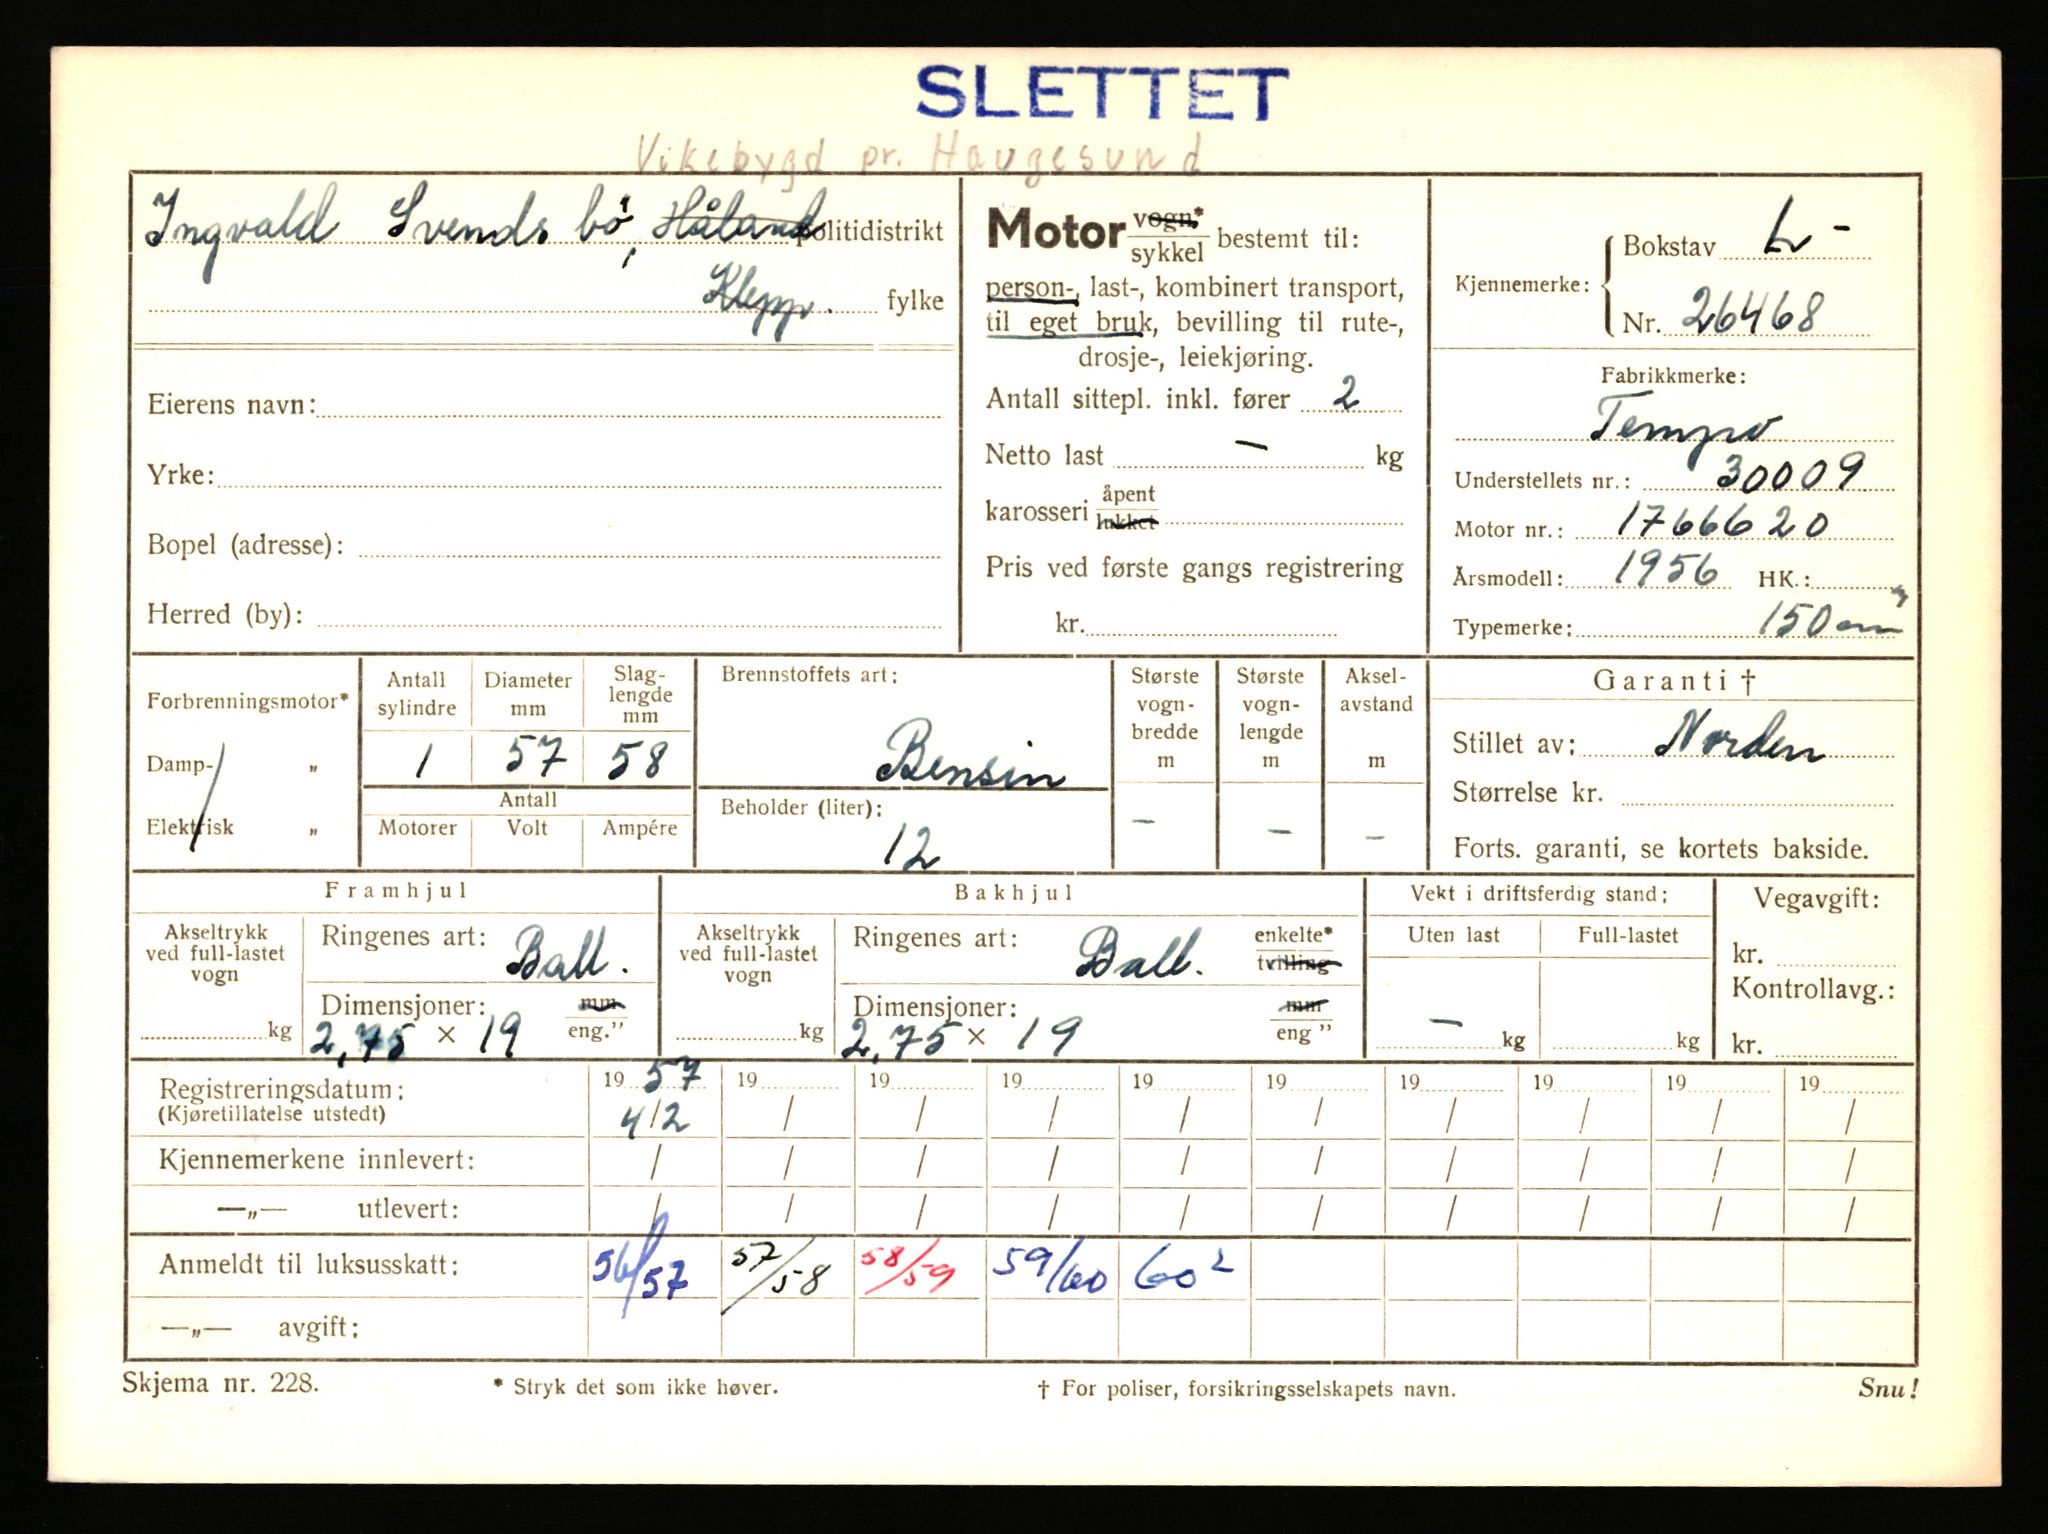 SLETTET
Vikebygd pr. Haugesund
Ingvald Svendsbö, Håland politidistrikt
Klepp. fylke
Eierens navn:
Yrke:
Bopel (adresse):
Herred (by):
Motor vogn* / sykkel bestemt til:
person-, last-, kombinert transport,
til eget bruk, bevilling til rute-,
drosje-, leiekjøring.
Antall sittepl. inkl. fører 2
Netto last – kg
karosseri åpent / lukket
Pris ved første gangs registrering
kr.
Kjennemerke: Bokstav L-
Nr. 26468
Fabrikkmerke:
Tempo
Understellets nr.: 30009
Motor nr.: 1766620
Årsmodell: 1956 HK.:
Typemerke: 150 cm³
Forbrenningsmotor*
Damp- „
Elektrisk „
Antall sylindre 1
Diameter mm 57
Slaglengde mm 58
Antall
Motorer Volt Ampére
Brennstoffets art:
Bensin
Beholder (liter):
12
Største vogn-bredde m –
Største vogn-lengde m –
Aksel-avstand m –
Garanti †
Stillet av: Norden
Størrelse kr.
Forts. garanti, se kortets bakside.
Framhjul
Akseltrykk ved full-lastet vogn kg
Ringenes art: Ball.
Dimensjoner: mm / eng."
2,75 × 19
Bakhjul
Akseltrykk ved full-lastet vogn kg
Ringenes art: Ball. enkelte* / tvilling
Dimensjoner: mm / eng "
2,75 × 19
Vekt i driftsferdig stand:
Uten last Full-lastet
– kg kg
Vegavgift:
kr.
Kontrollavg.:
kr.
Registreringsdatum: 19 57 19 19 19 19 19 19 19 19 19
(Kjøretillatelse utstedt) 4/2 / / / / / / / / /
Kjennemerkene innlevert: / / / / / / / / / /
—„— utlevert: / / / / / / / / / /
Anmeldt til luksusskatt: 56/57 57/58 58/59 59/60 60²
—„— avgift:
Skjema nr. 228. * Stryk det som ikke høver. † For poliser, forsikringsselskapets navn. Snu!